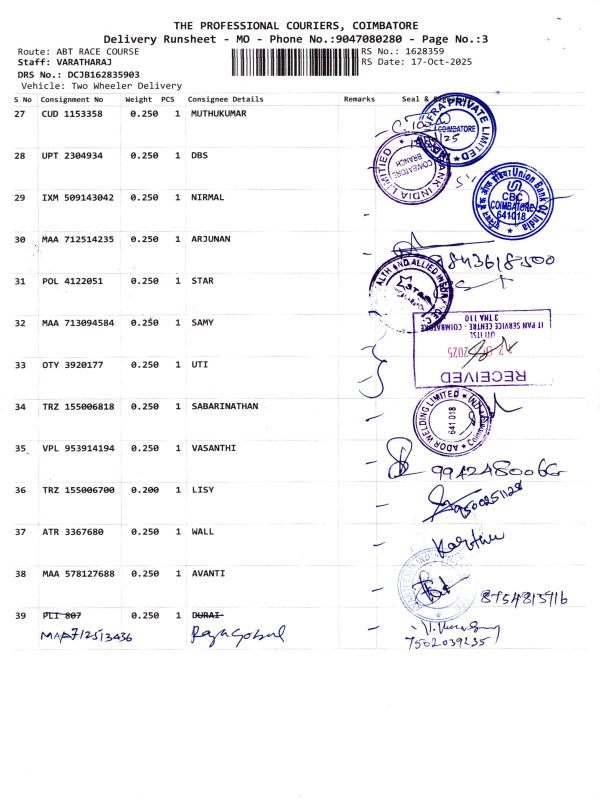 THE PROFESSIONAL COURIERS, COIMBATORE
Delivery Runsheet - MO - Phone No.:9047080280 - Page No.:3
Route: ABT RACE COURSE RS No.: 1628359
Staff: VARATHARAJ RS Date: 17-Oct-2025
DRS No.: DCJB162835903
Vehicle: Two Wheeler Delivery
S No Consignment No Weight PCS Consignee Details Remarks Seal &
27 CUD 1153358 0.250 1 MUTHUKUMAR
PRIVATE LIMITED
COIMBATORE
28 UPT 2304934 0.250 1 DBS
BANK INDIA LIMITED
COIMBATORE
BRANCH
29 IXM 509143042 0.250 1 NIRMAL
Union Bank of India
CBC
COIMBATORE
641018
30 MAA 712514235 0.250 1 ARJUNAN
9843618500
31 POL 4122051 0.250 1 STAR
STAR
32 MAA 713094584 0.250 1 SAMY
IT PAN SERVICE CENTRE - COIMBATORE
UTI ITSL
3 TNA 110
2025
RECEIVED
33 OTY 3920177 0.250 1 UTI
34 TRZ 155006818 0.250 1 SABARINATHAN
ADOR WELDING LIMITED
641 018
35 VPL 953914194 0.250 1 VASANTHI
9942480066
36 TRZ 155006700 0.200 1 LISY
9500251128
37 ATR 3367680 0.250 1 WALL
Karthu
38 MAA 578127688 0.250 1 AVANTI
8754815916
39 PLI 807 0.250 1 DURAI
MAA712513436 Rajagopal
7502039235